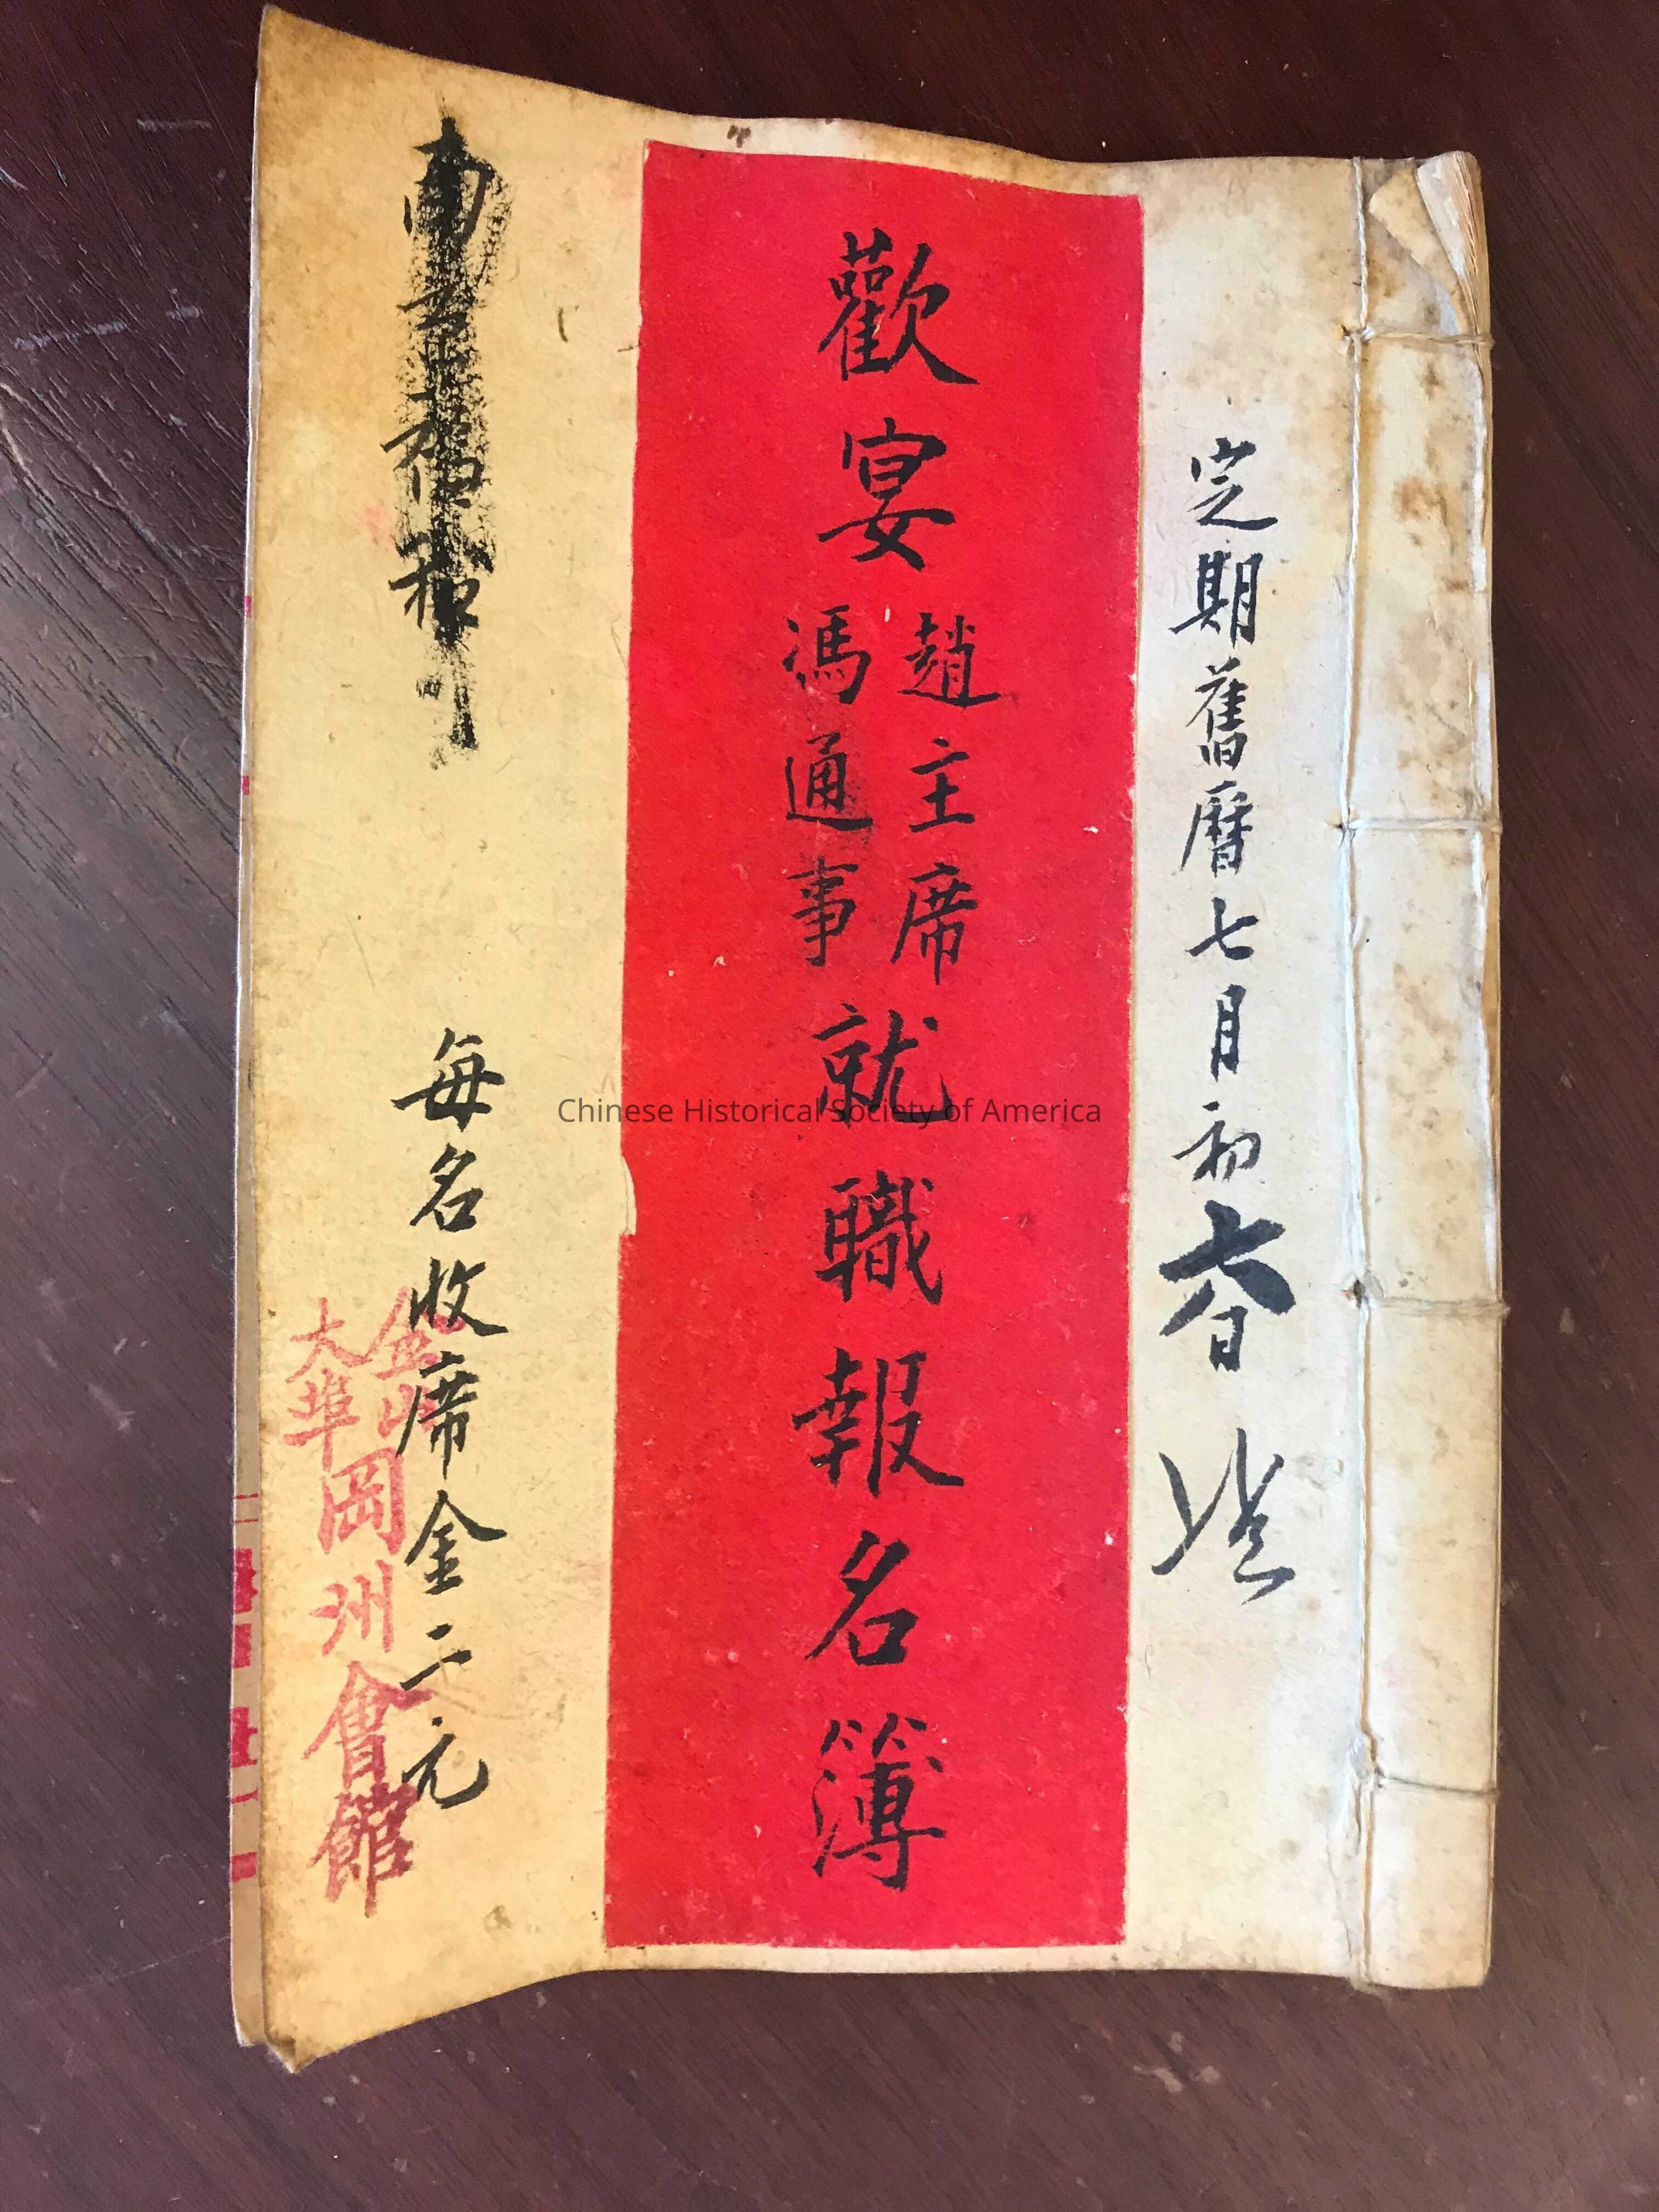 定期舊曆七月初七日
歡宴趙主席馮通事就職報名簿
每名收席金二元
金山大埠岡州會館
Chinese Historical Society of America